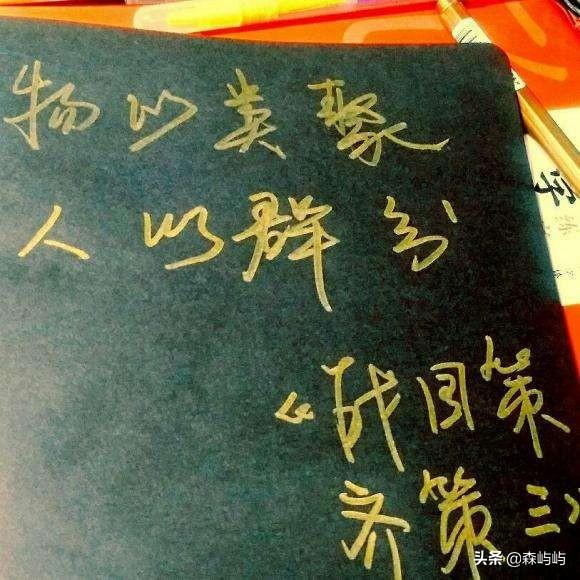 物以类聚
人以群分
《战国策
齐策三》
字
头条 @森屿屿